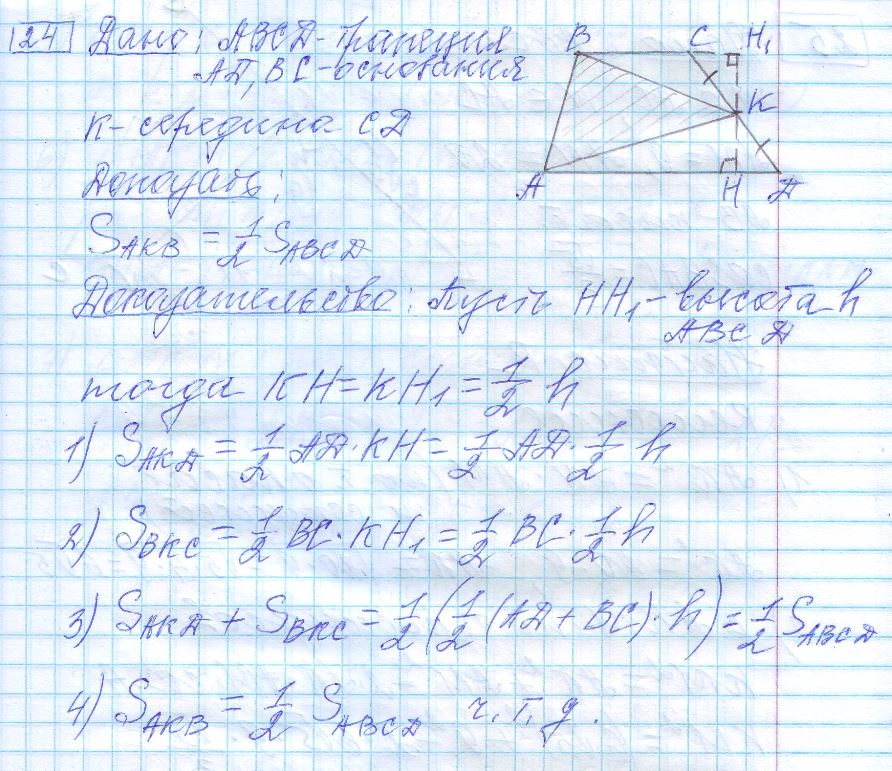 24 Дано: ABCD-трапеция
AD, BC-основания
K-середина CD
Доказать:
S_AKB = 1/2 S_ABCD
Доказательство: Пусть HH₁-высота h
ABCD
тогда KH=KH₁=1/2 h
1) S_AKD = 1/2 AD·KH = 1/2 AD·1/2 h
2) S_BKC = 1/2 BC·KH₁ = 1/2 BC·1/2 h
3) S_AKD + S_BKC = 1/2 (1/2 (AD+BC)·h) = 1/2 S_ABCD
4) S_AKB = 1/2 S_ABCD ч.т.д.
B C H₁
K
A H D